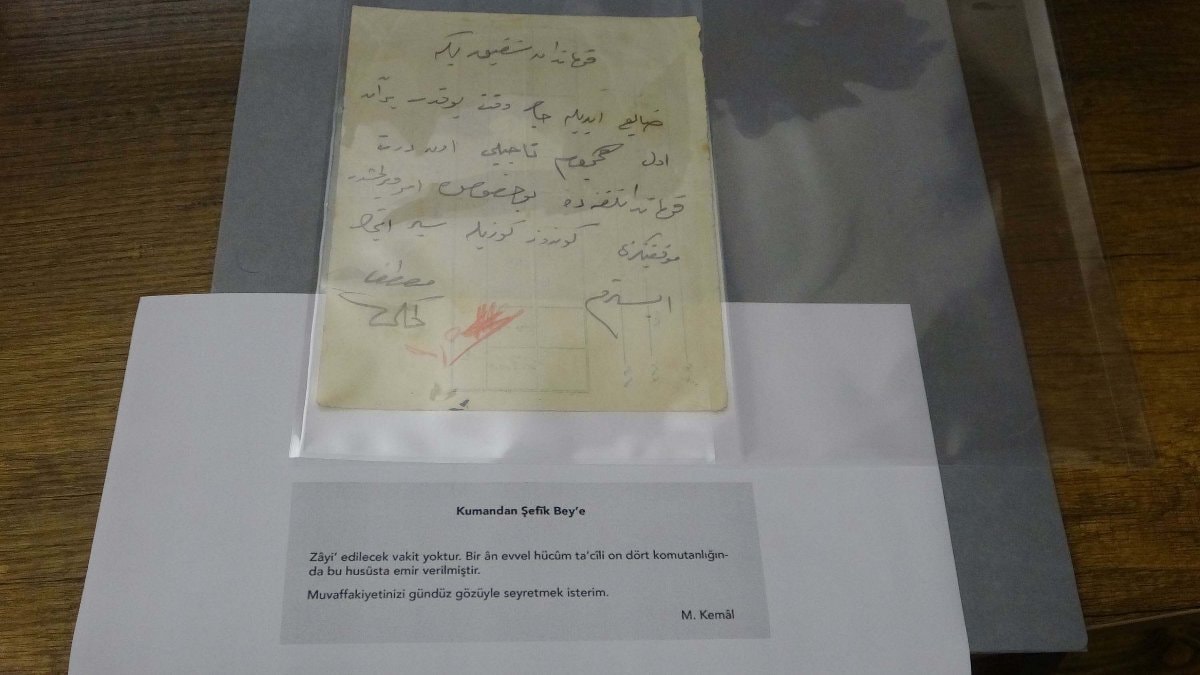 قوماندان شفیق بكه
ضایع ایدیله جك وقت یوقدر بر آن
اول هجوم تعجیلی اون درت
قوماندانلغنده بو خصوصده امر ویرلمشدر
موفقیتكزی كوندوز كوزیله سیر ایتمك
ایسترم
مصطفی
كمال
Kumandan Şefîk Bey'e
Zâyi' edilecek vakit yoktur. Bir ân evvel hücûm ta'cîli on dört komutanlığın-
da bu husûsta emir verilmiştir.
Muvaffakiyetinizi gündüz gözüyle seyretmek isterim.
M. Kemâl